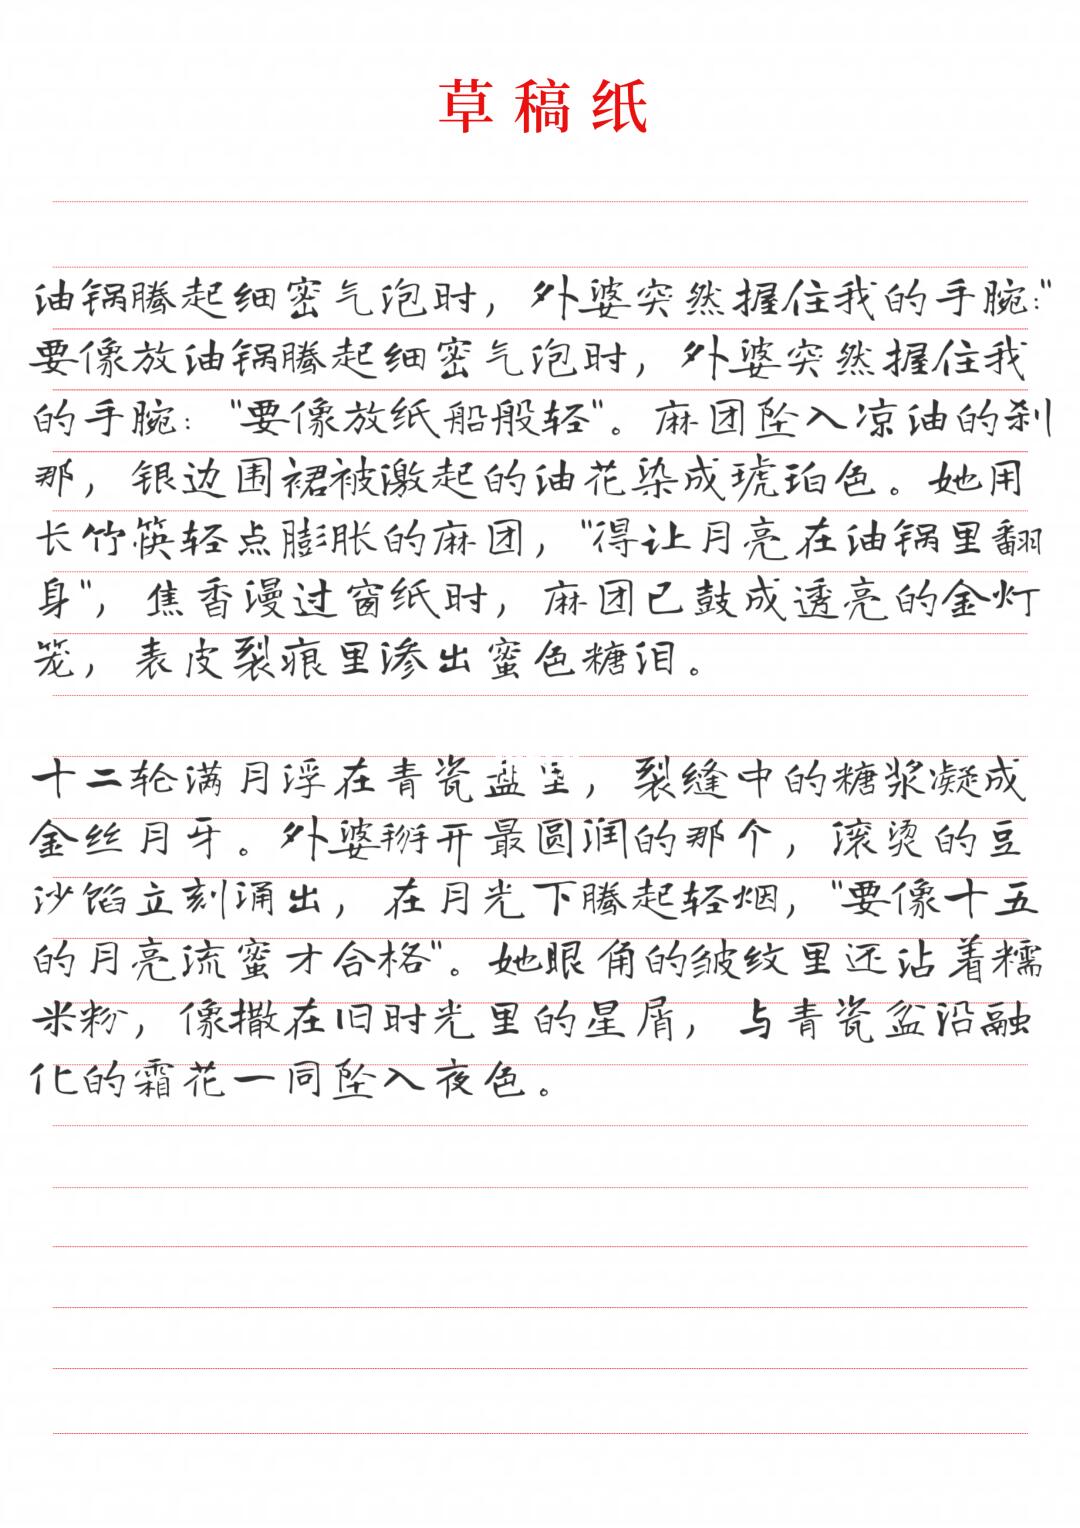 草稿纸
油锅腾起细密气泡时，外婆突然握住我的手腕:"
要像放油锅腾起细密气泡时，外婆突然握住我
的手腕："要像放纸船般轻"。麻团坠入凉油的刹
那，银边围裙被激起的油花染成琥珀色。她用
长竹筷轻点膨胀的麻团，"得让月亮在油锅里翻
身"，焦香漫过窗纸时，麻团已鼓成透亮的金灯
笼，表皮裂痕里渗出蜜色糖泪。
十二轮满月浮在青瓷盘里，裂缝中的糖浆凝成
金丝月牙。外婆掰开最圆润的那个，滚烫的豆
沙馅立刻涌出，在月光下腾起轻烟，"要像十五
的月亮流蜜才合格"。她眼角的皱纹里还沾着糯
米粉，像撒在旧时光里的星屑，与青瓷盆沿融
化的霜花一同坠入夜色。